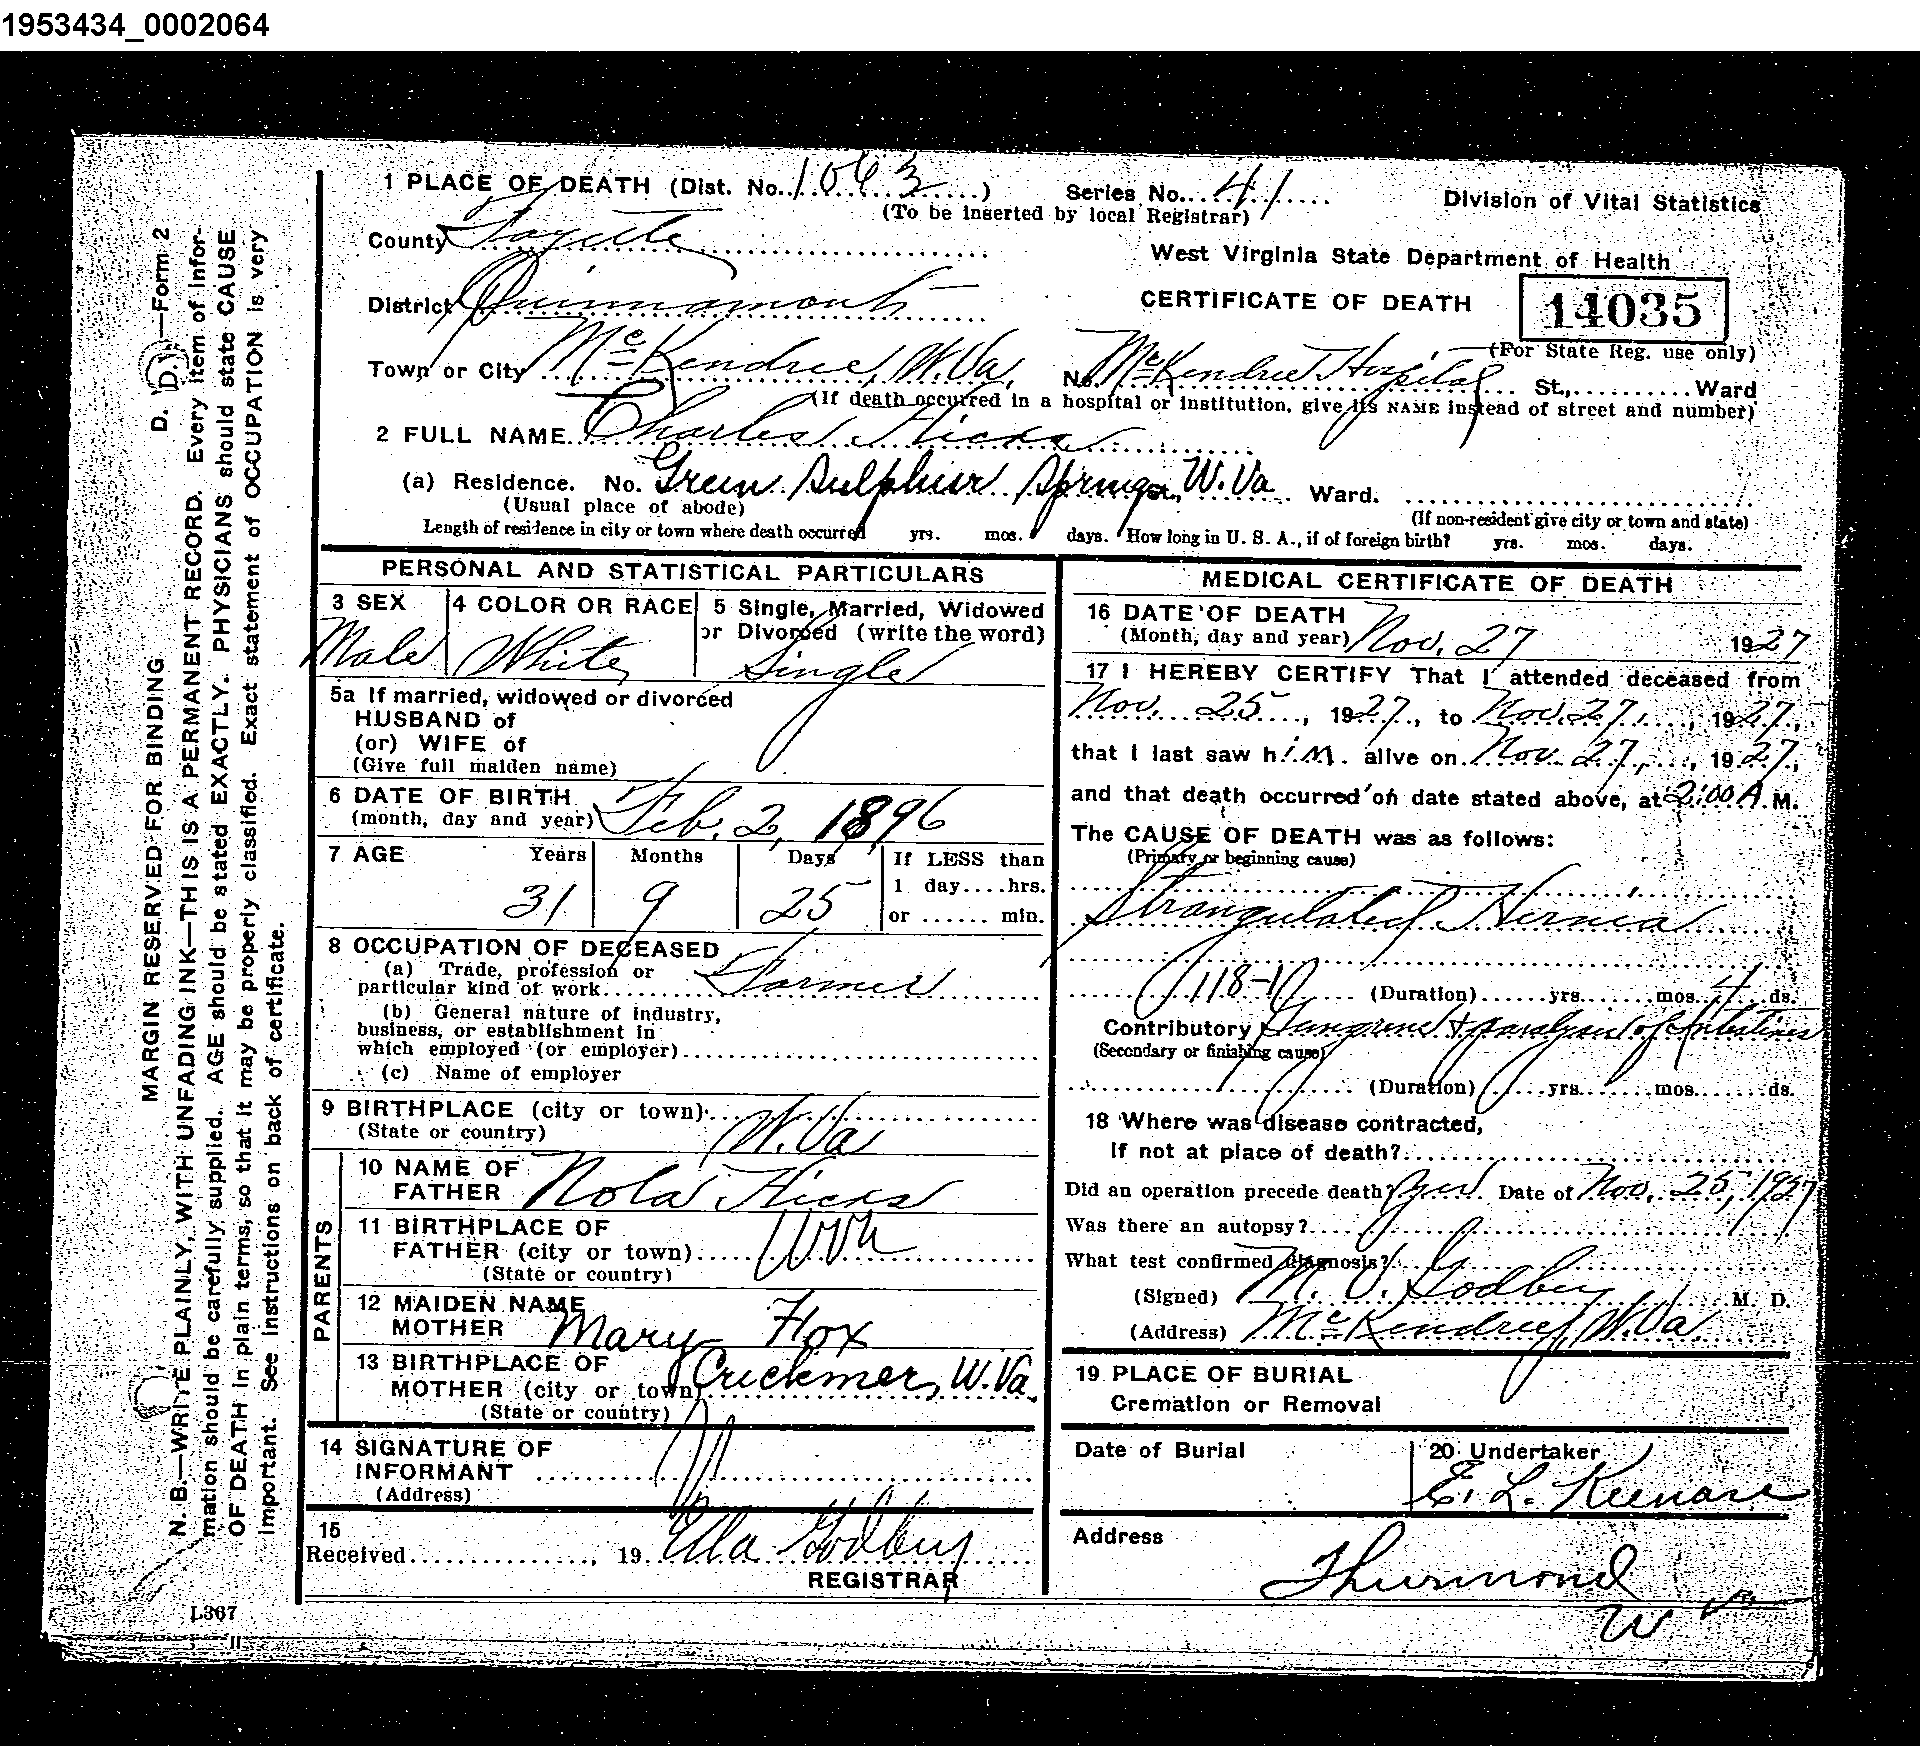 1953434_0002064
1 PLACE OF DEATH (Dist. No. 1063) Series No. 41 Division of Vital Statistics
(To be inserted by local Registrar)
County Fayette
West Virginia State Department of Health
District Quinnamont CERTIFICATE OF DEATH 14035
(For State Reg. use only)
Town or City McKendree, W.Va. No. McKendree Hospital St., Ward
(If death occurred in a hospital or institution, give its NAME instead of street and number)
2 FULL NAME Charles Hicks
(a) Residence. No. Green Sulphur Springs, W.Va Ward.
(Usual place of abode) (If non-resident give city or town and state)
Length of residence in city or town where death occurred yrs. mos. days. How long in U. S. A., if of foreign birth? yrs. mos. days.
PERSONAL AND STATISTICAL PARTICULARS
3 SEX 4 COLOR OR RACE 5 Single, Married, Widowed
or Divorced (write the word)
Male White Single
5a If married, widowed or divorced
HUSBAND of
(or) WIFE of
(Give full maiden name)
6 DATE OF BIRTH
(month, day and year) Feb. 2, 1896
7 AGE Years Months Days If LESS than
1 day....hrs.
31 9 25 or ...... min.
8 OCCUPATION OF DECEASED
(a) Trade, profession or
particular kind of work Farmer
(b) General nature of industry,
business, or establishment in
which employed (or employer)
(c) Name of employer
9 BIRTHPLACE (city or town)
(State or country) W.Va
PARENTS
10 NAME OF
FATHER Nola Hicks
11 BIRTHPLACE OF
FATHER (city or town) W Va
(State or country)
12 MAIDEN NAME
MOTHER Mary Fox
13 BIRTHPLACE OF
MOTHER (city or town) Crickmer, W.Va.
(State or country)
14 SIGNATURE OF
INFORMANT
(Address)
15
Received 19 Ela Godbey
REGISTRAR
MEDICAL CERTIFICATE OF DEATH
16 DATE OF DEATH
(Month, day and year) Nov. 27 1927
17 I HEREBY CERTIFY That I attended deceased from
Nov. 25, 1927, to Nov. 27, 1927,
that I last saw him alive on Nov. 27, 1927,
and that death occurred on date stated above, at 2:00 A.M.
The CAUSE OF DEATH was as follows:
(Primary or beginning cause)
Strangulated Hernia
118-
(Duration) yrs. mos. 4 ds.
Contributory Gangrene & paralysis of Intestines
(Secondary or finishing cause)
(Duration) yrs. mos. ds.
18 Where was disease contracted,
If not at place of death?
Did an operation precede death? yes. Date of Nov. 25, 1927
Was there an autopsy?
What test confirmed diagnosis?
(Signed) M. V. Godbey M. D.
(Address) McKendree, W.Va
19 PLACE OF BURIAL
Cremation or Removal
Date of Burial 20 Undertaker
E. L. Keenan
Address
Thurmond
W Va
MARGIN RESERVED FOR BINDING D. D.—Form 2
N. B.—WRITE PLAINLY, WITH UNFADING INK—THIS IS A PERMANENT RECORD. Every item of infor-
mation should be carefully supplied. AGE should be stated EXACTLY. PHYSICIANS should state CAUSE
OF DEATH in plain terms, so that it may be properly classified. Exact statement of OCCUPATION is very
important. See instructions on back of certificate.
L367